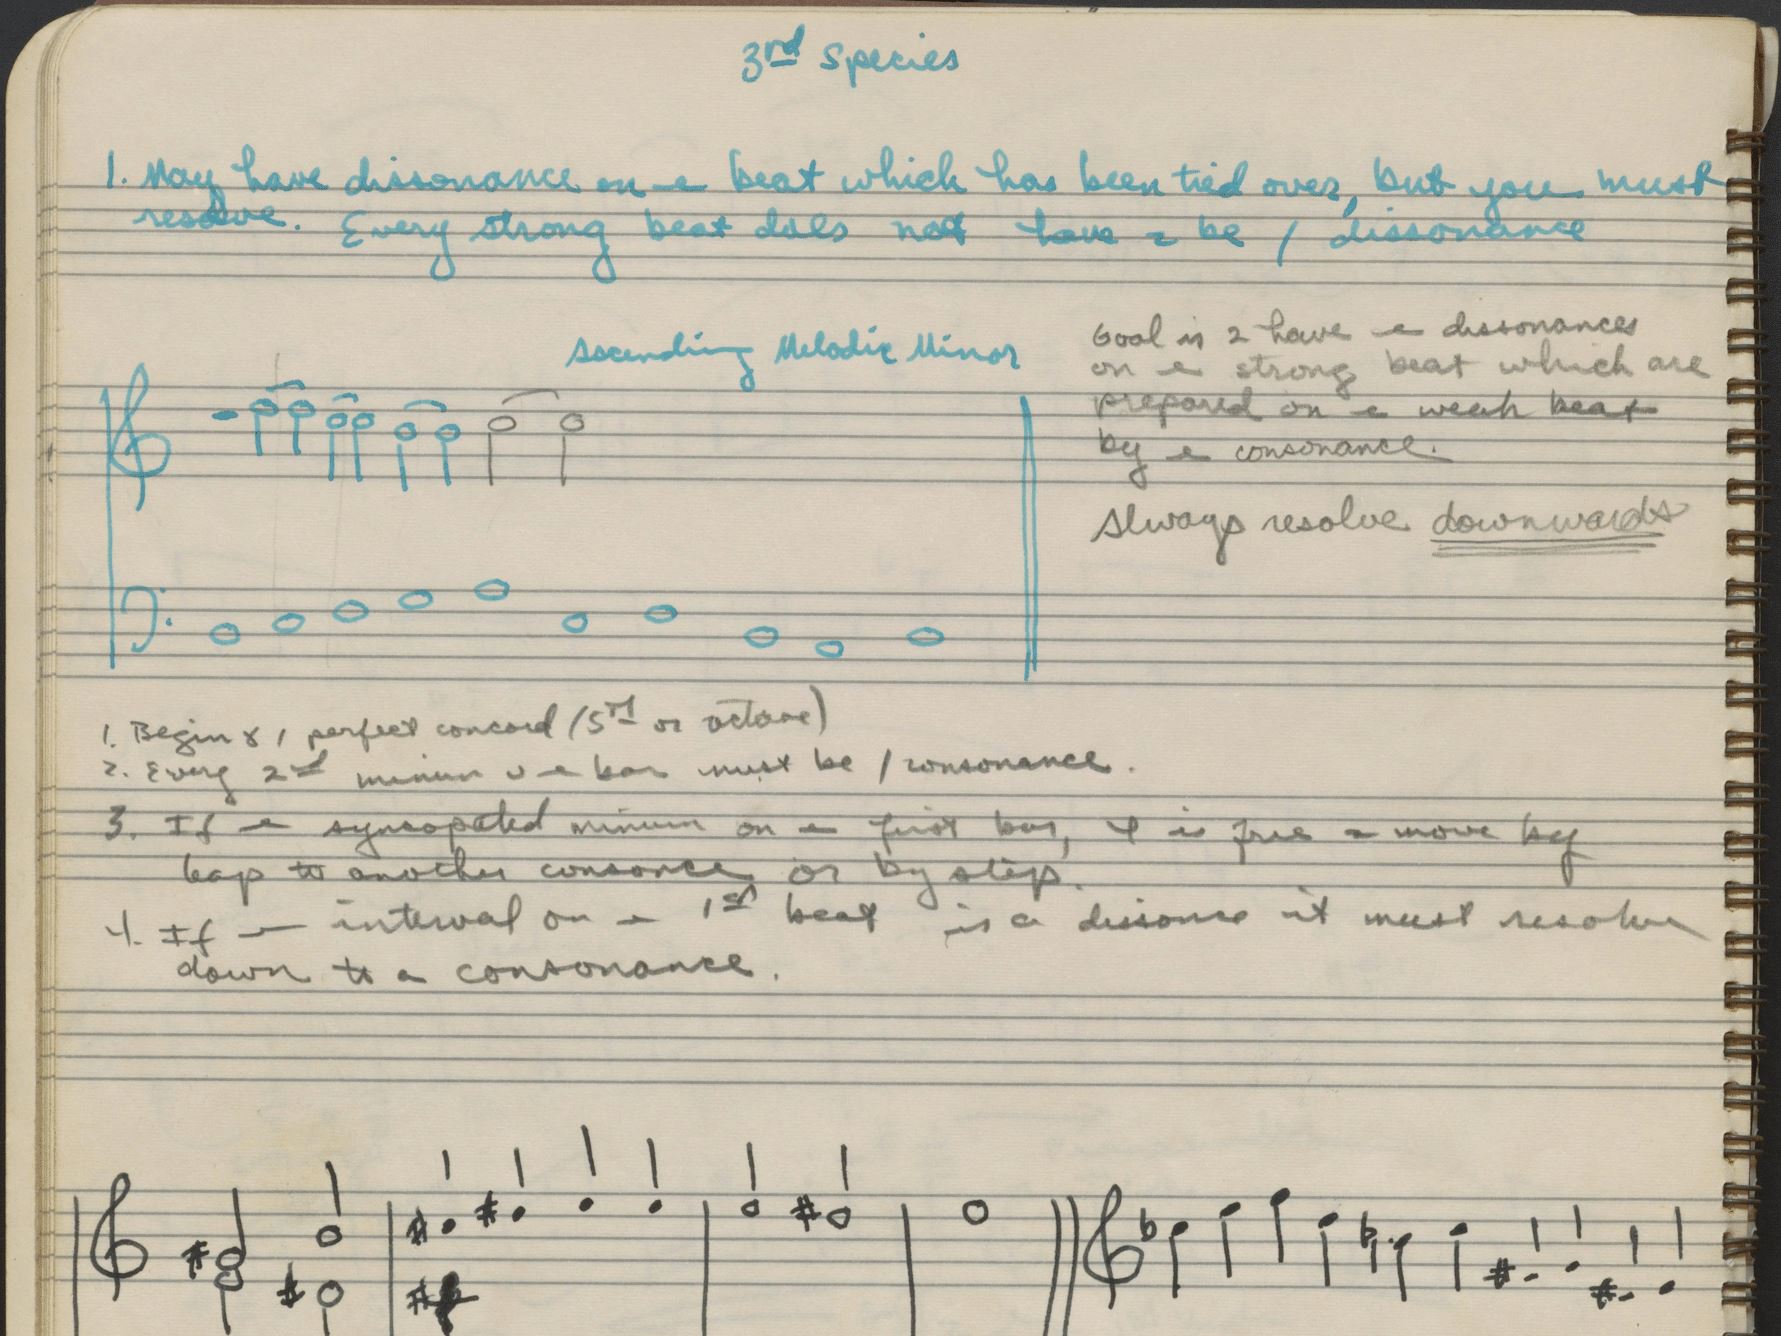 3rd Species
1. May have dissonance on e beat which has been tied over, but you must
resolve. Every strong beat does not have 2 be / dissonance
Ascending Melodic Minor
Goal is 2 have e dissonances
on e strong beat which are
prepared on e weak beat
by e consonance.
Always resolve downwards
1. Begin / perfect concord (5th or octave)
2. Every 2nd minim e bar must be / consonance.
3. If e syncopated minim on e first bar, it is free 2 move by
leap to another consonce or by step.
4. If e interval on e 1st beat is a dissonce it must resolve
down to a consonance.